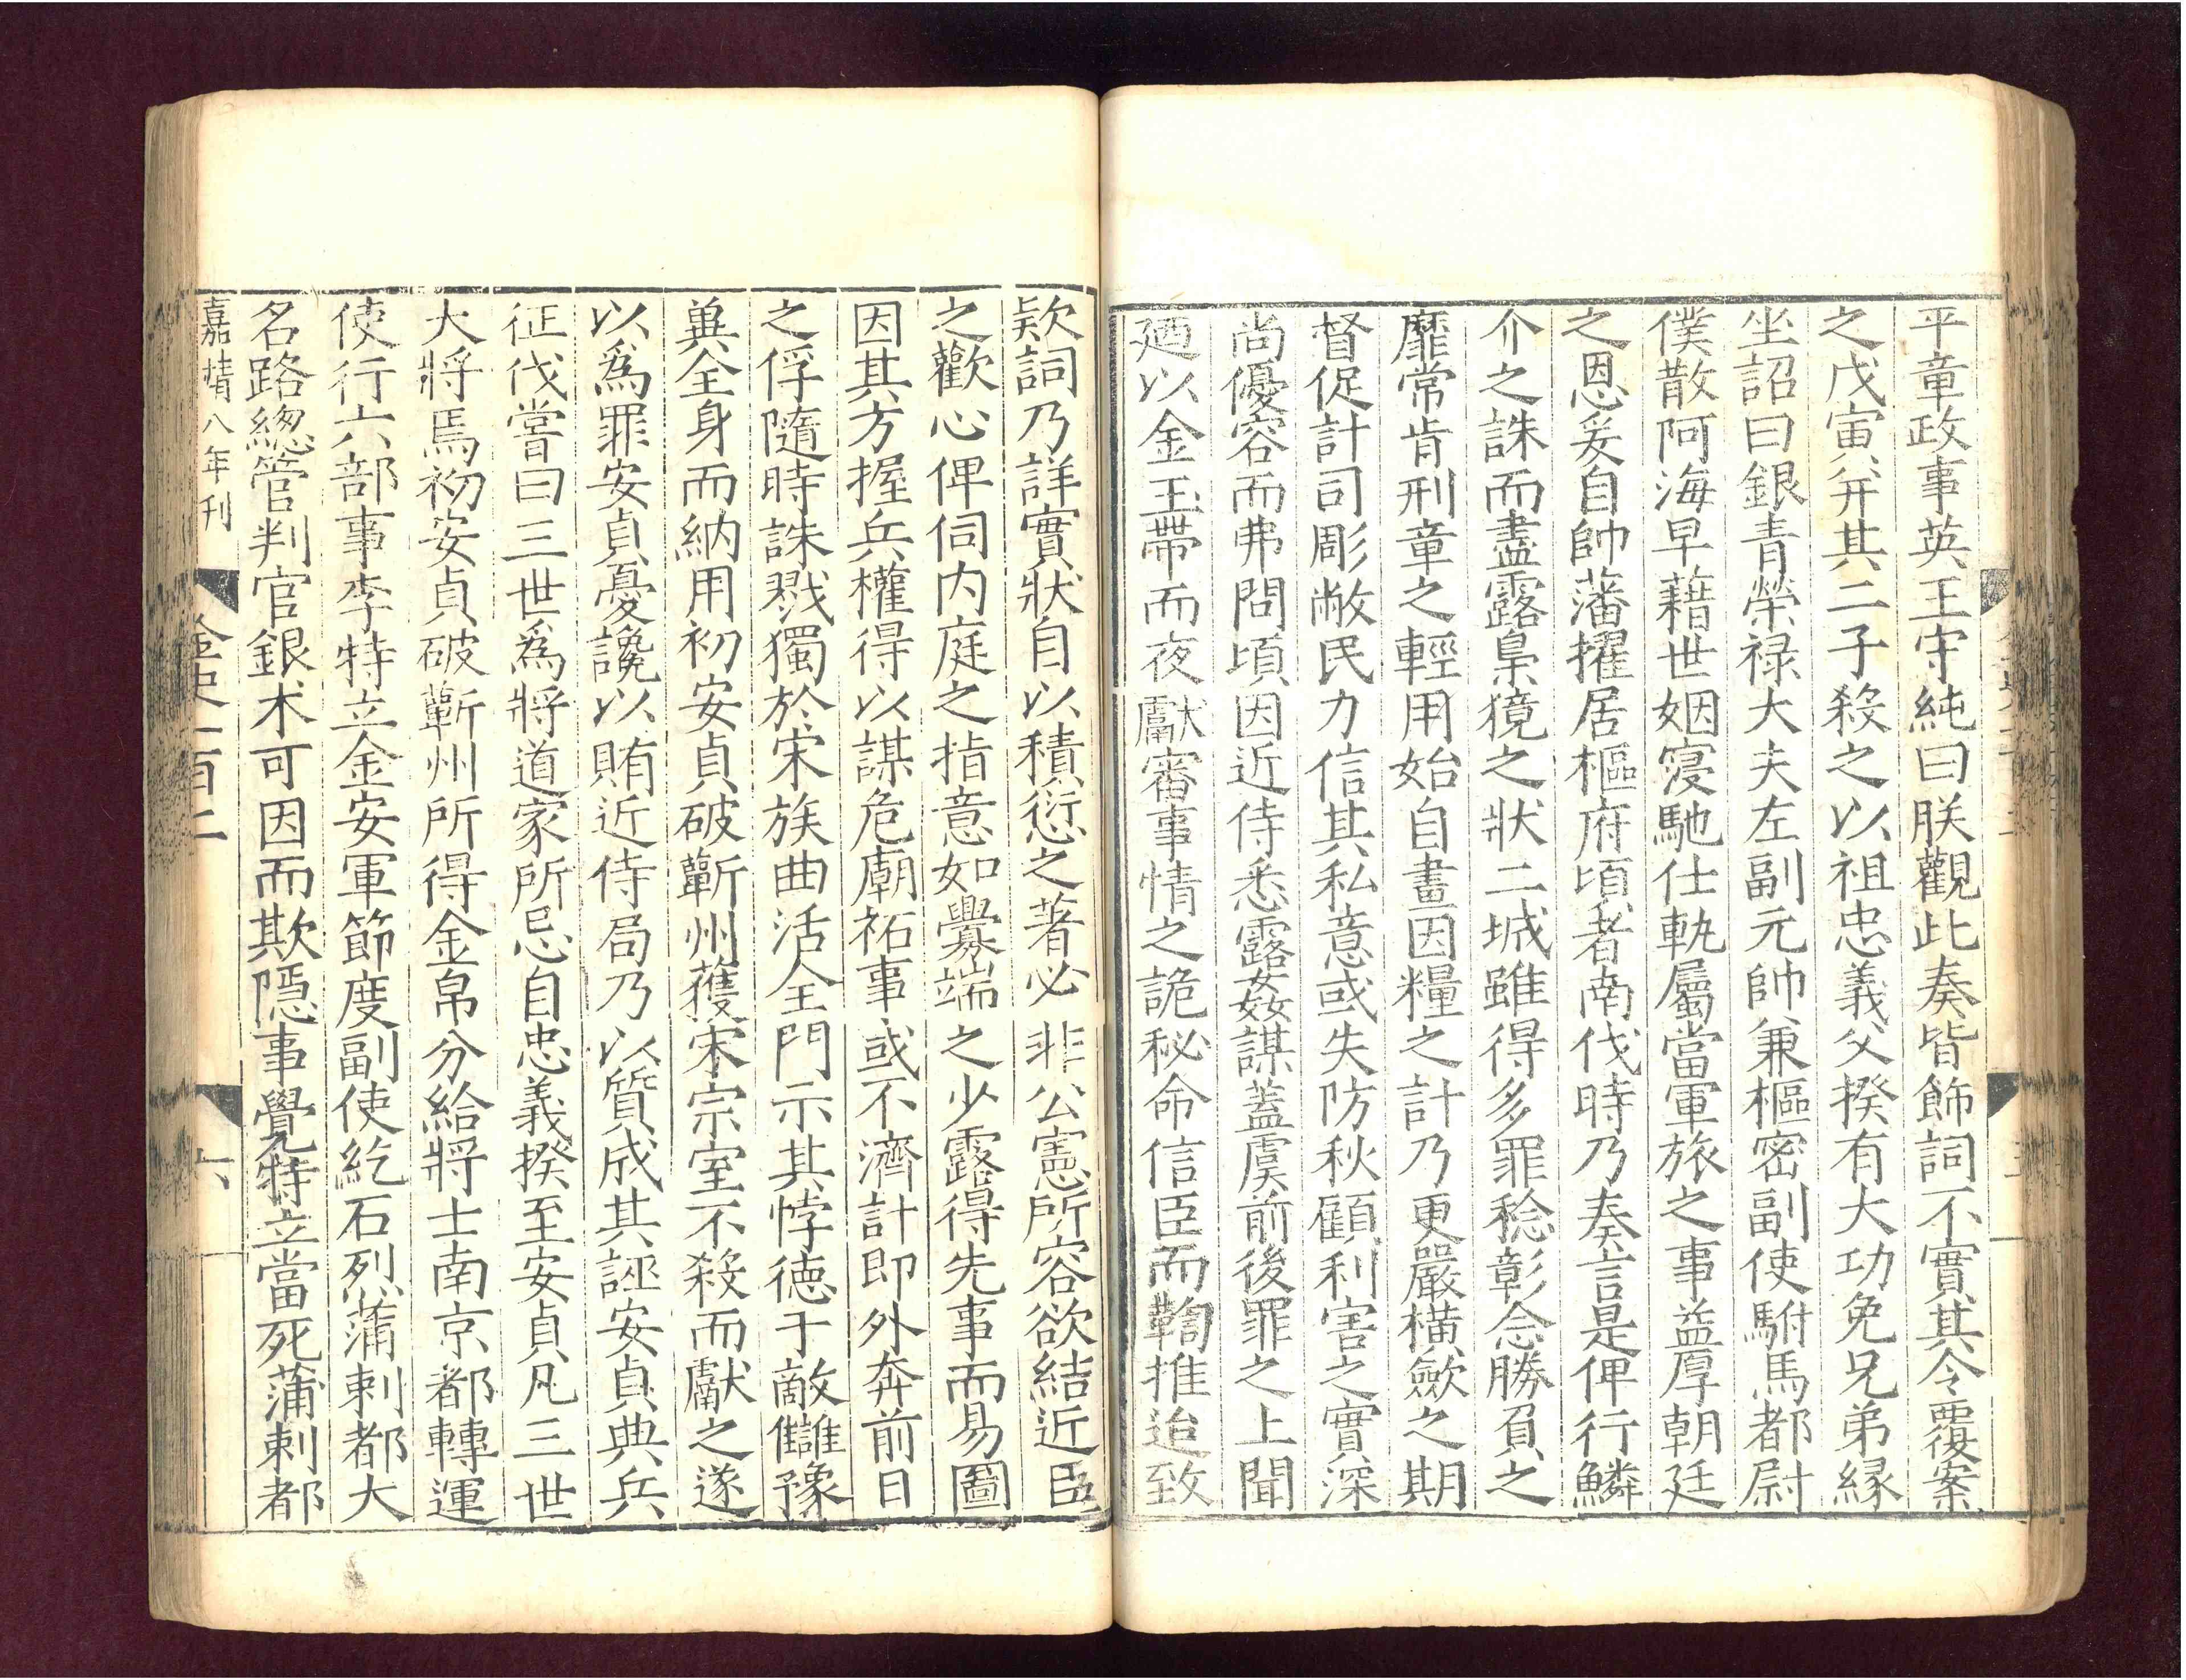 平章政事英王守純曰朕觀此奏皆飾詞不實其令覆案
之戊寅并其二子殺之以祖忠義父揆有大功免兄弟縁
坐詔曰銀青榮禄大夫左副元帥兼樞密副使駙馬都尉
僕散阿海早藉世姻寖馳仕軌屬當軍旅之事益厚朝廷
之恩爰自帥藩擢居樞府頃者南伐時乃奏言是俾行鱗
介之誅而盡露梟獍之狀二城雖得多罪稔彰念勝負之
靡常肯刑章之輕用始自畫因糧之計乃更嚴横斂之期
督促計司彫敝民力信其私意或失防秋顧利害之實深
尚優容而弗問頃因近侍悉露姦謀蓋虞前後罪之上聞
廼以金玉帶而夜獻審事情之詭秘命信臣而鞫推迨致
欵詞乃詳實狀自以積愆之著必非公憲所容欲結近臣
之歡心俾伺内庭之指意如釁端之少露得先事而易圖
因其方握兵權得以謀危廟祏事或不濟計即外奔前日
之俘隨時誅戮獨於宋族曲活全門示其悖徳于敵讎豫
兾全身而納用初安貞破蘄州獲宋宗室不殺而獻之遂
以爲罪安貞憂讒以賄近侍局乃以質成其誣安貞典兵
征伐嘗曰三世爲將道家所忌自忠義揆至安貞凡三世
大將焉初安貞破蘄州所得金帛分給將士南京都轉運
使行六部事李特立金安軍節度副使紇石烈蒲剌都大
名路總管判官銀术可因而欺隱事覺特立當死蒲剌都
嘉靖八年刊
金史一百二
六